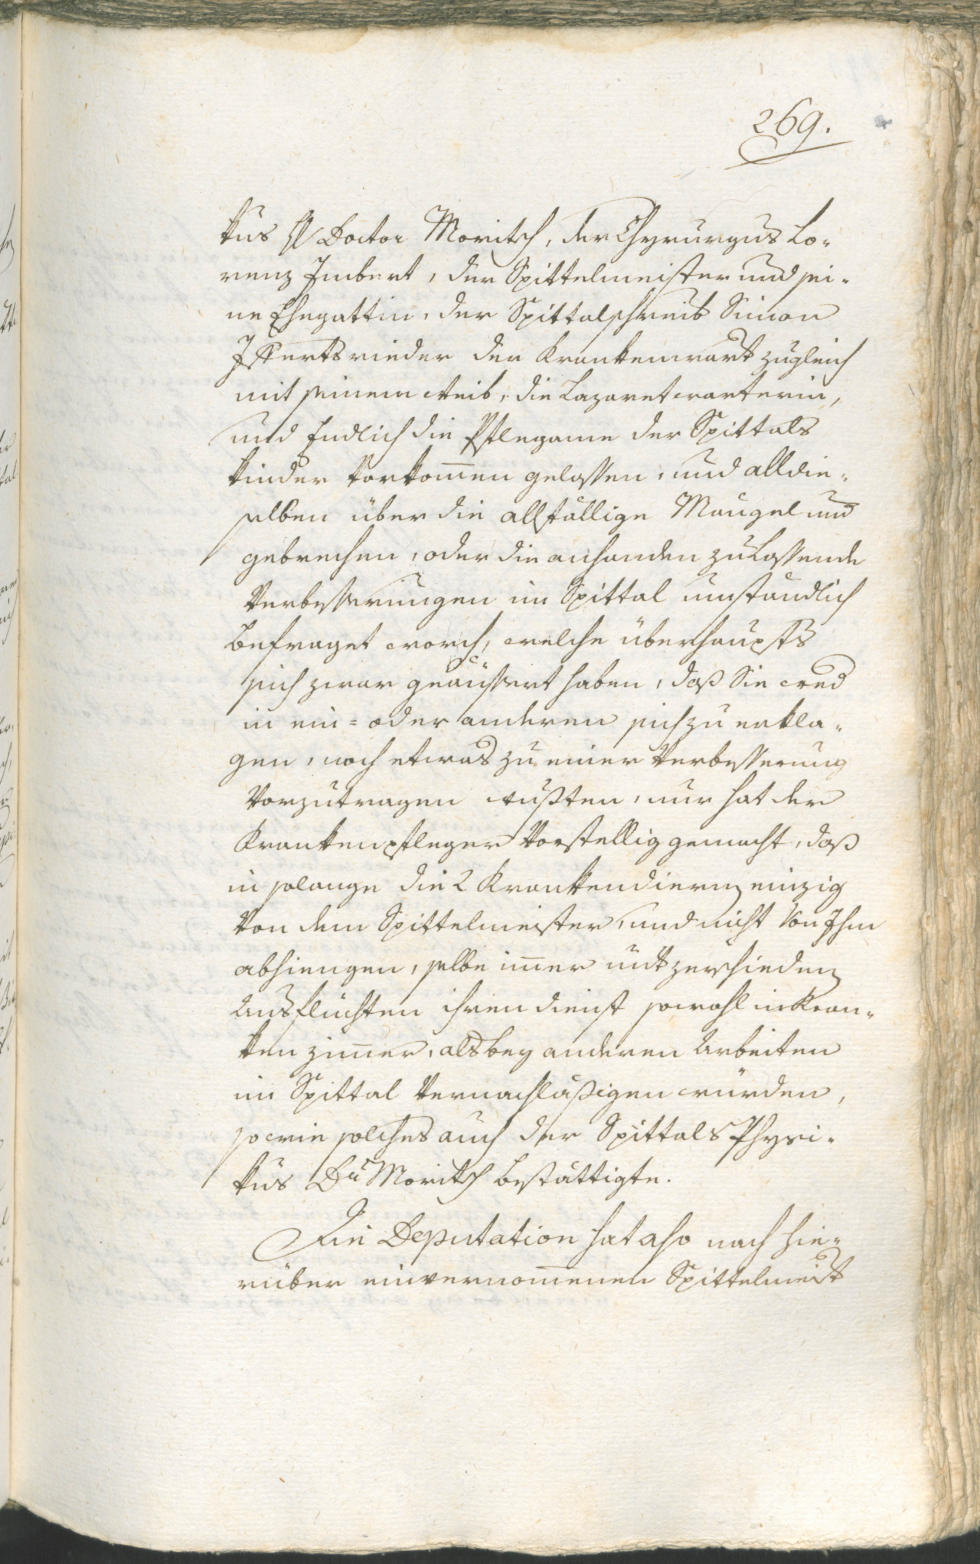 269.
kus H Doctor Moritsch, der Chyrurgus Lo-
renz Imbert, der Spittelmeister und sei-
ne Ehegattin, der Spittalschreib Simon
der Krankenwart zugleich
mit seinem Weib, die Lazaretwarterin,
und Endlich die Pflegame der Spittals
kinder Vorkom̄en gelassen, und alldie-
selben über die allfällige Mängel und
gebrechen, oder die anhanden zulassende
Verbesserungen im Spittal umständlich
befraget word, welche überhaupts
sich zwar geäussert haben, daß Sie wed
in ein= oder anderen sich zu erkla-
gen, noch etwas zu einer Verbesserung
Vorzutragen wußten, nur hat der
Krankenpfleger Vorstellig gemacht, daß
in solange die 2 Krankendiern einzig
Von dem Spittelmeister, und nicht Von Ihm
abhiengen, selbe im̄er mit zerschieden
Ausflüchten ihren dienst sowohl in Kran-
ken zim̄er, als bey anderen Arbeiten
im Spittal Vernachläßigen würden,
sowie solches auch der Spittals Physi-
kus Dr Moritsch bestättigte.
Die Deputation hat also nach hie-
rüber einvernom̄enen Spittelmeist